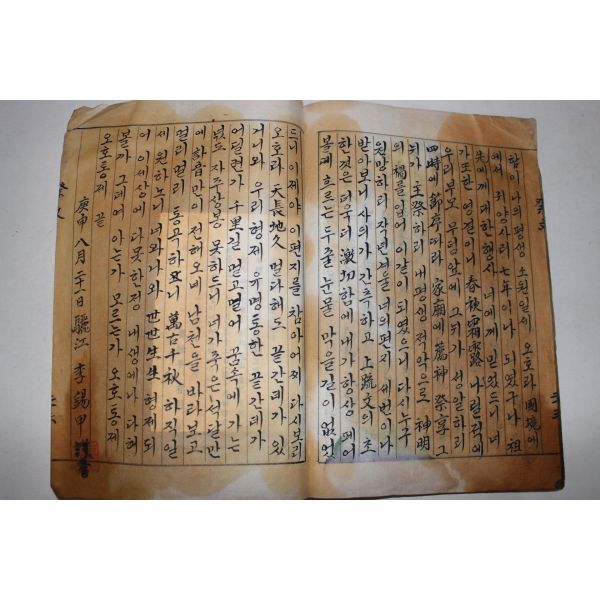 함이 나의 평생 소원일세 오호라 國境에
에서 귀양사리 七年이나 되엿구나 祖
先에 대한 행사 너에게 믿었드니 너
가 또한 영결이니 春秋霜露 나릴적에
우리부모 무덤앞에 그뉘가 성알하리
四時에 節序따라 家廟에 薦神祭享 그
뉘가 主祭하리 내평생 적악으로 神明
의 禍를 입어 이갈이 되였으니 다시 누구
원망하리 작년겨울 너의편지 세번이나
받아보니 사의가 간측하고 上疏文의 초
한것은 더욱더 激切함에 내가 항상 페어
볼제 흐르는 두줄 눈물 막을길이 없었
드니 이제야 이편지를 참아어찌 다시보리
오호라 天長地久 멀다해도 끝간데가 있
거니와 우리형제 유명통한 끝간데가
어딜런가 千里길 멀고멀어 꿈속에 가는
넋도 자주상봉 못하드니 너가죽은 석달만
에 訃音만이 전해오니 남천을 바라보고
멀리멀리 통곡하오니 萬古千秋 하직일
세 원하노니 너와나와 世世生生 형제되
어 이세상에 다못한정 내생에나 다해
볼까 그대여 아는가 모르는가 오호통제
오호통제 끝
庚申 八月 二十一日 驪江 李錫甲 謹書